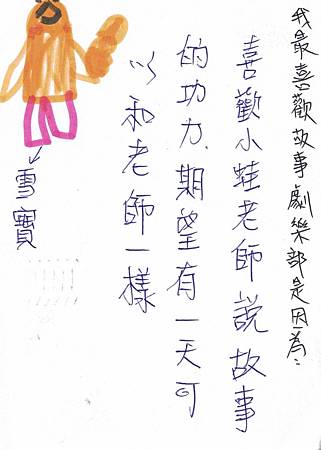 我最喜歡故事劇樂部是因為:
喜歡小蛙老師說故事
的功力,期望有一天可
以和老師一樣
雪寶